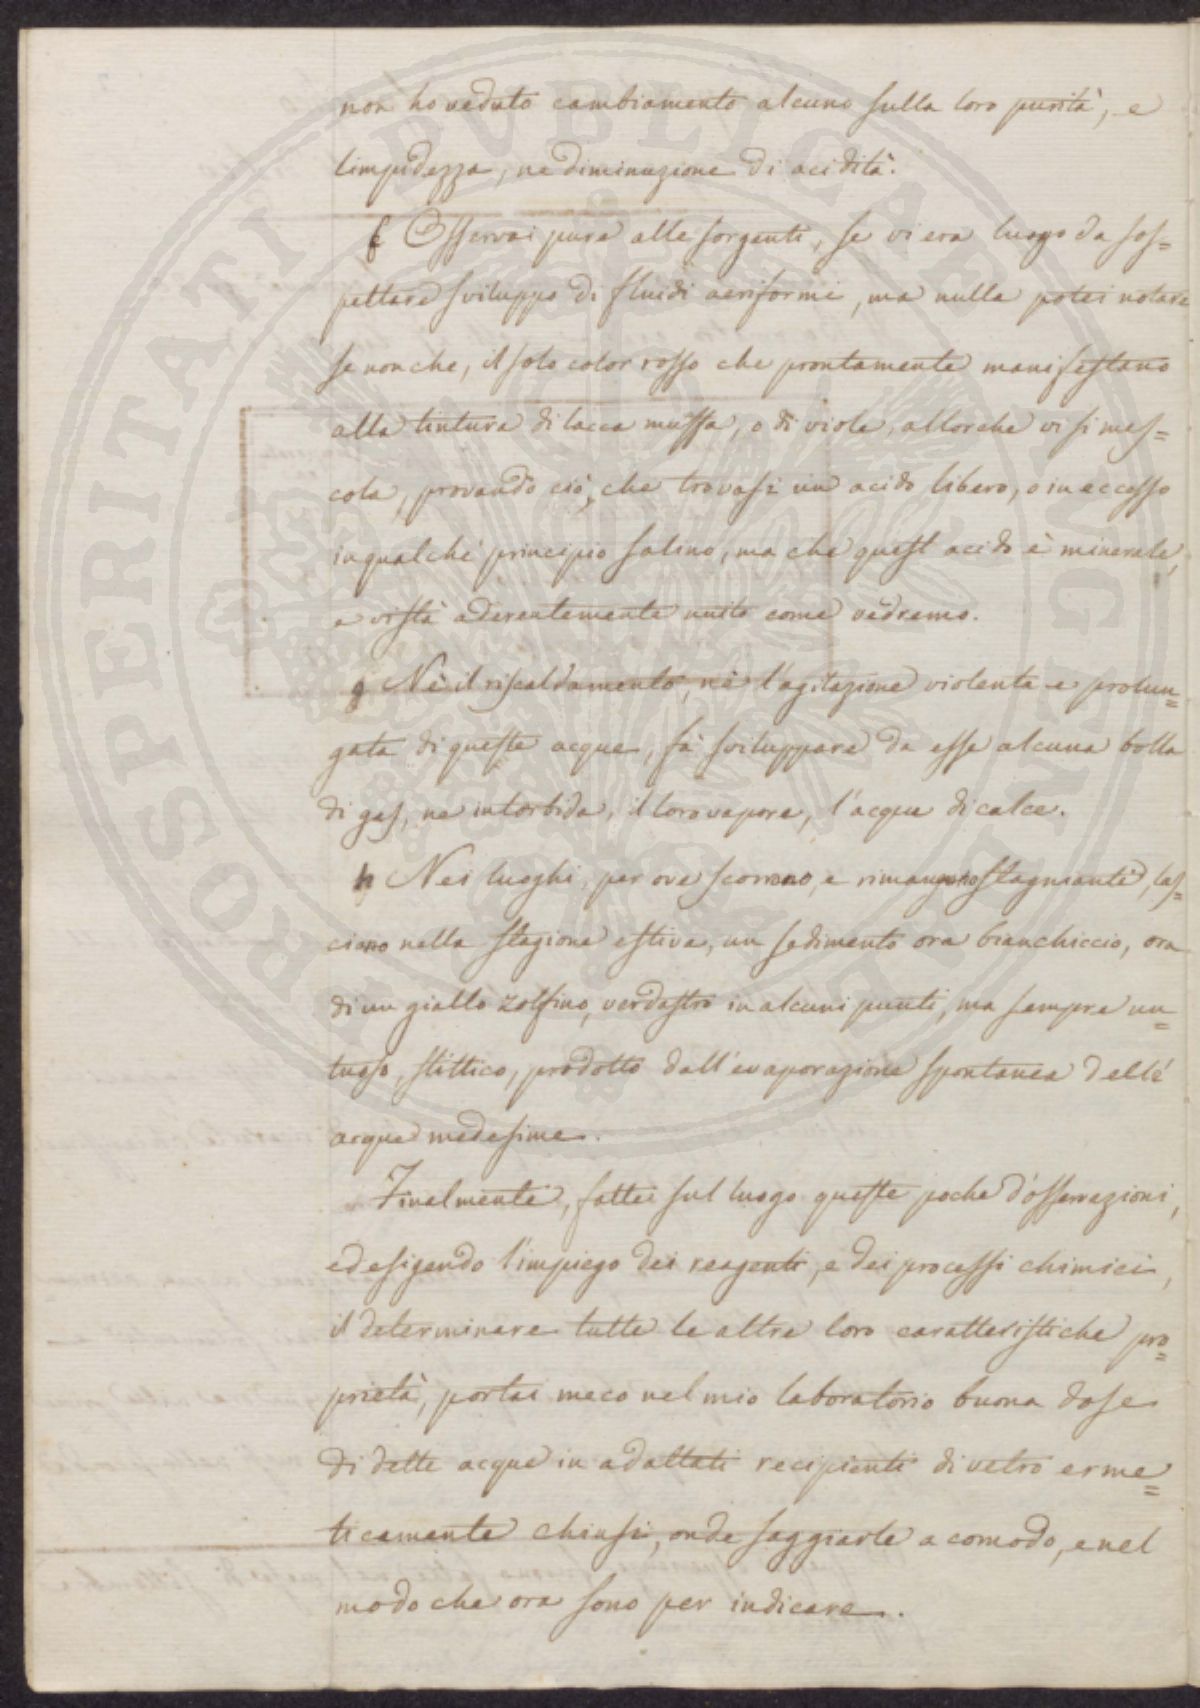 non ho veduto cambiamento alcuno sulla loro purità, e
limpidezza, ne diminuzione di acidità.
f Osservai pure alle sorgenti, se vi era luogo da sos=
pettare sviluppo di fluidi aeriformi, ma nulla potei notare
se non che, il solo color rosso che prontamente manifestano
alla tintura di lacca muffa, o di viole, allorche vi si mes=
cola, provando ciò, che trovasi un acido libero, o in eccesso
in qualche principio salino, ma che quest acido è minerale,
e vi stà aderentemente unito come vedremo.
g Nè il riscaldamento, nè l'agitazione violenta e prolun=
gata di queste acque, fà sviluppare da esse alcuna bolla
di gas, ne intorbida, il loro vapore, l'acqua di calce.
h Nei luoghi, per ove scorrono, e rimangono stagnanti, las=
ciano nella stagione estiva, un sedimento ora bianchiccio, ora
di un giallo zolfino, verdastro in alcuni punti, ma sempre un=
tuoso, stittico, prodotto dall'evaporazione spontanea delle
acque medesime.
Finalmente, fatte sul luogo queste poche d'osservazioni,
ed esigendo l'impiego dei reagenti, e dei processi chimici,
il determinare tutte le altre loro caratteristiche pro=
prietà, portai meco nel mio laboratorio buona dose
di dette acque in adattati recipienti di vetro erme=
ticamente chiusi, onde saggiarle a comodo, e nel
modo che ora sono per indicare.
PROSPERITATI PVBLICAE AVGENDAE